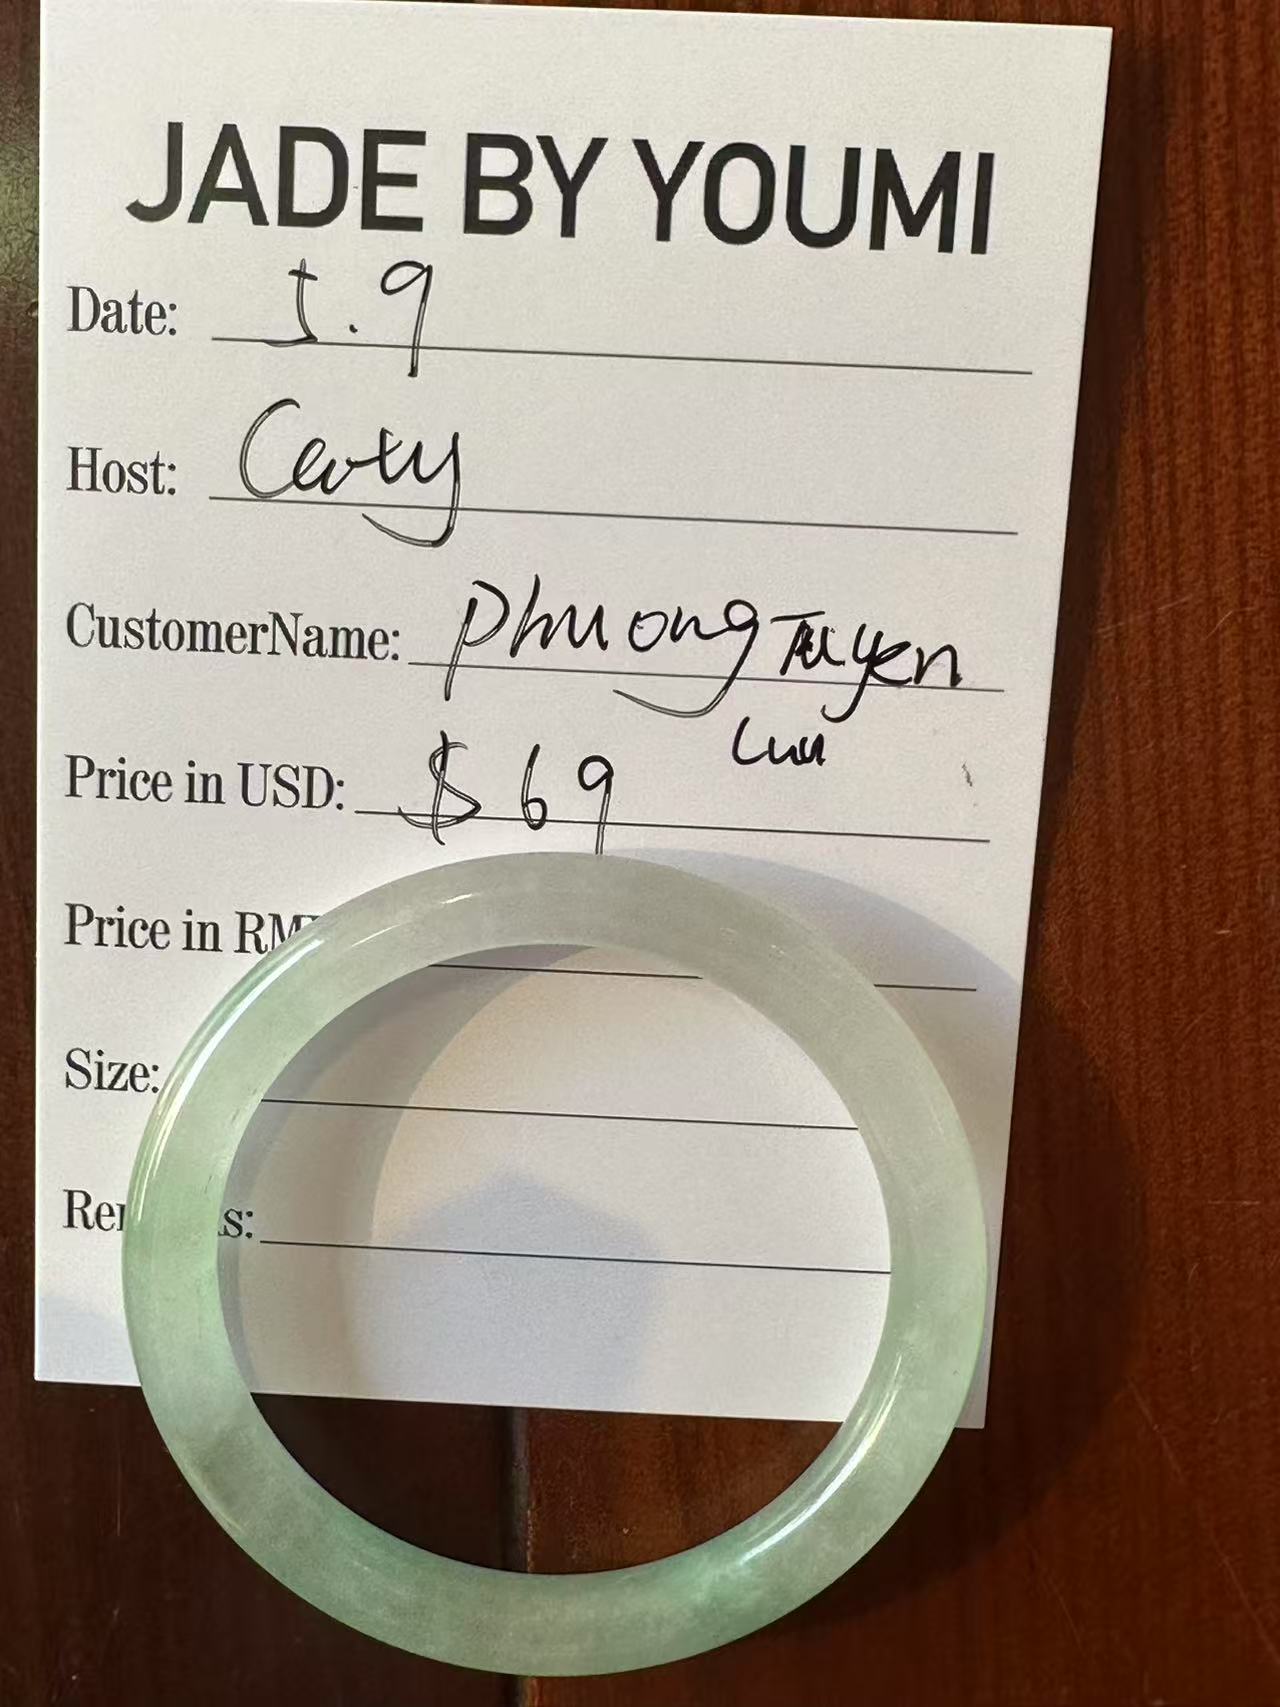 JADE BY YOUMI
Date: 5.9
Host: Caty
CustomerName: Phuong Tuyen
Luu
Price in USD: $ 69
Price in RM
Size: